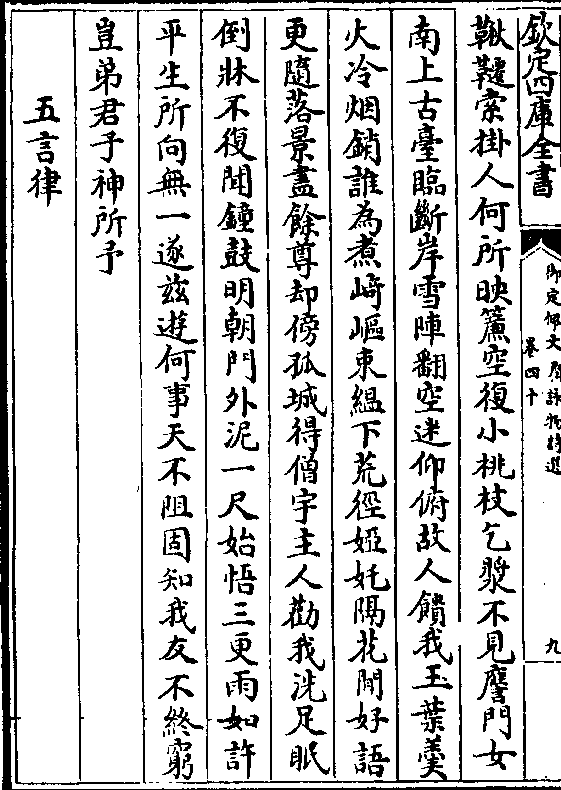 欽定四庫全書
御定佩文齋詠物詩選
卷四十
九
鞦韆索掛人何所映簾空復小桃枝乞漿不見譍門女
南上古臺臨斷岸雪陣翻空迷仰俯故人饋我玉葉羹
火冷烟銷誰為煮崎嶇束緼下荒徑婭奼隔花聞好語
更隨落景盡餘尊却傍孤城得僧宇主人勸我洗足眠
倒牀不復聞鐘鼓明朝門外泥一尺始悟三更雨如許
平生所向無一遂兹遊何事天不阻固知我友不終窮
豈弟君子神所予
五言律